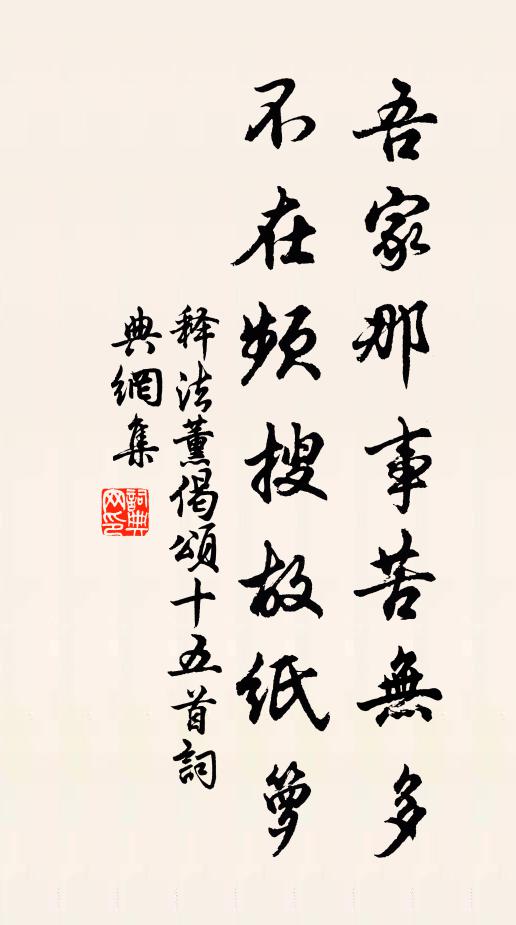 吾家那事苦無多
不在频搜故纸箩
释法薰偈頌十五首詞
典網集
詞典網印